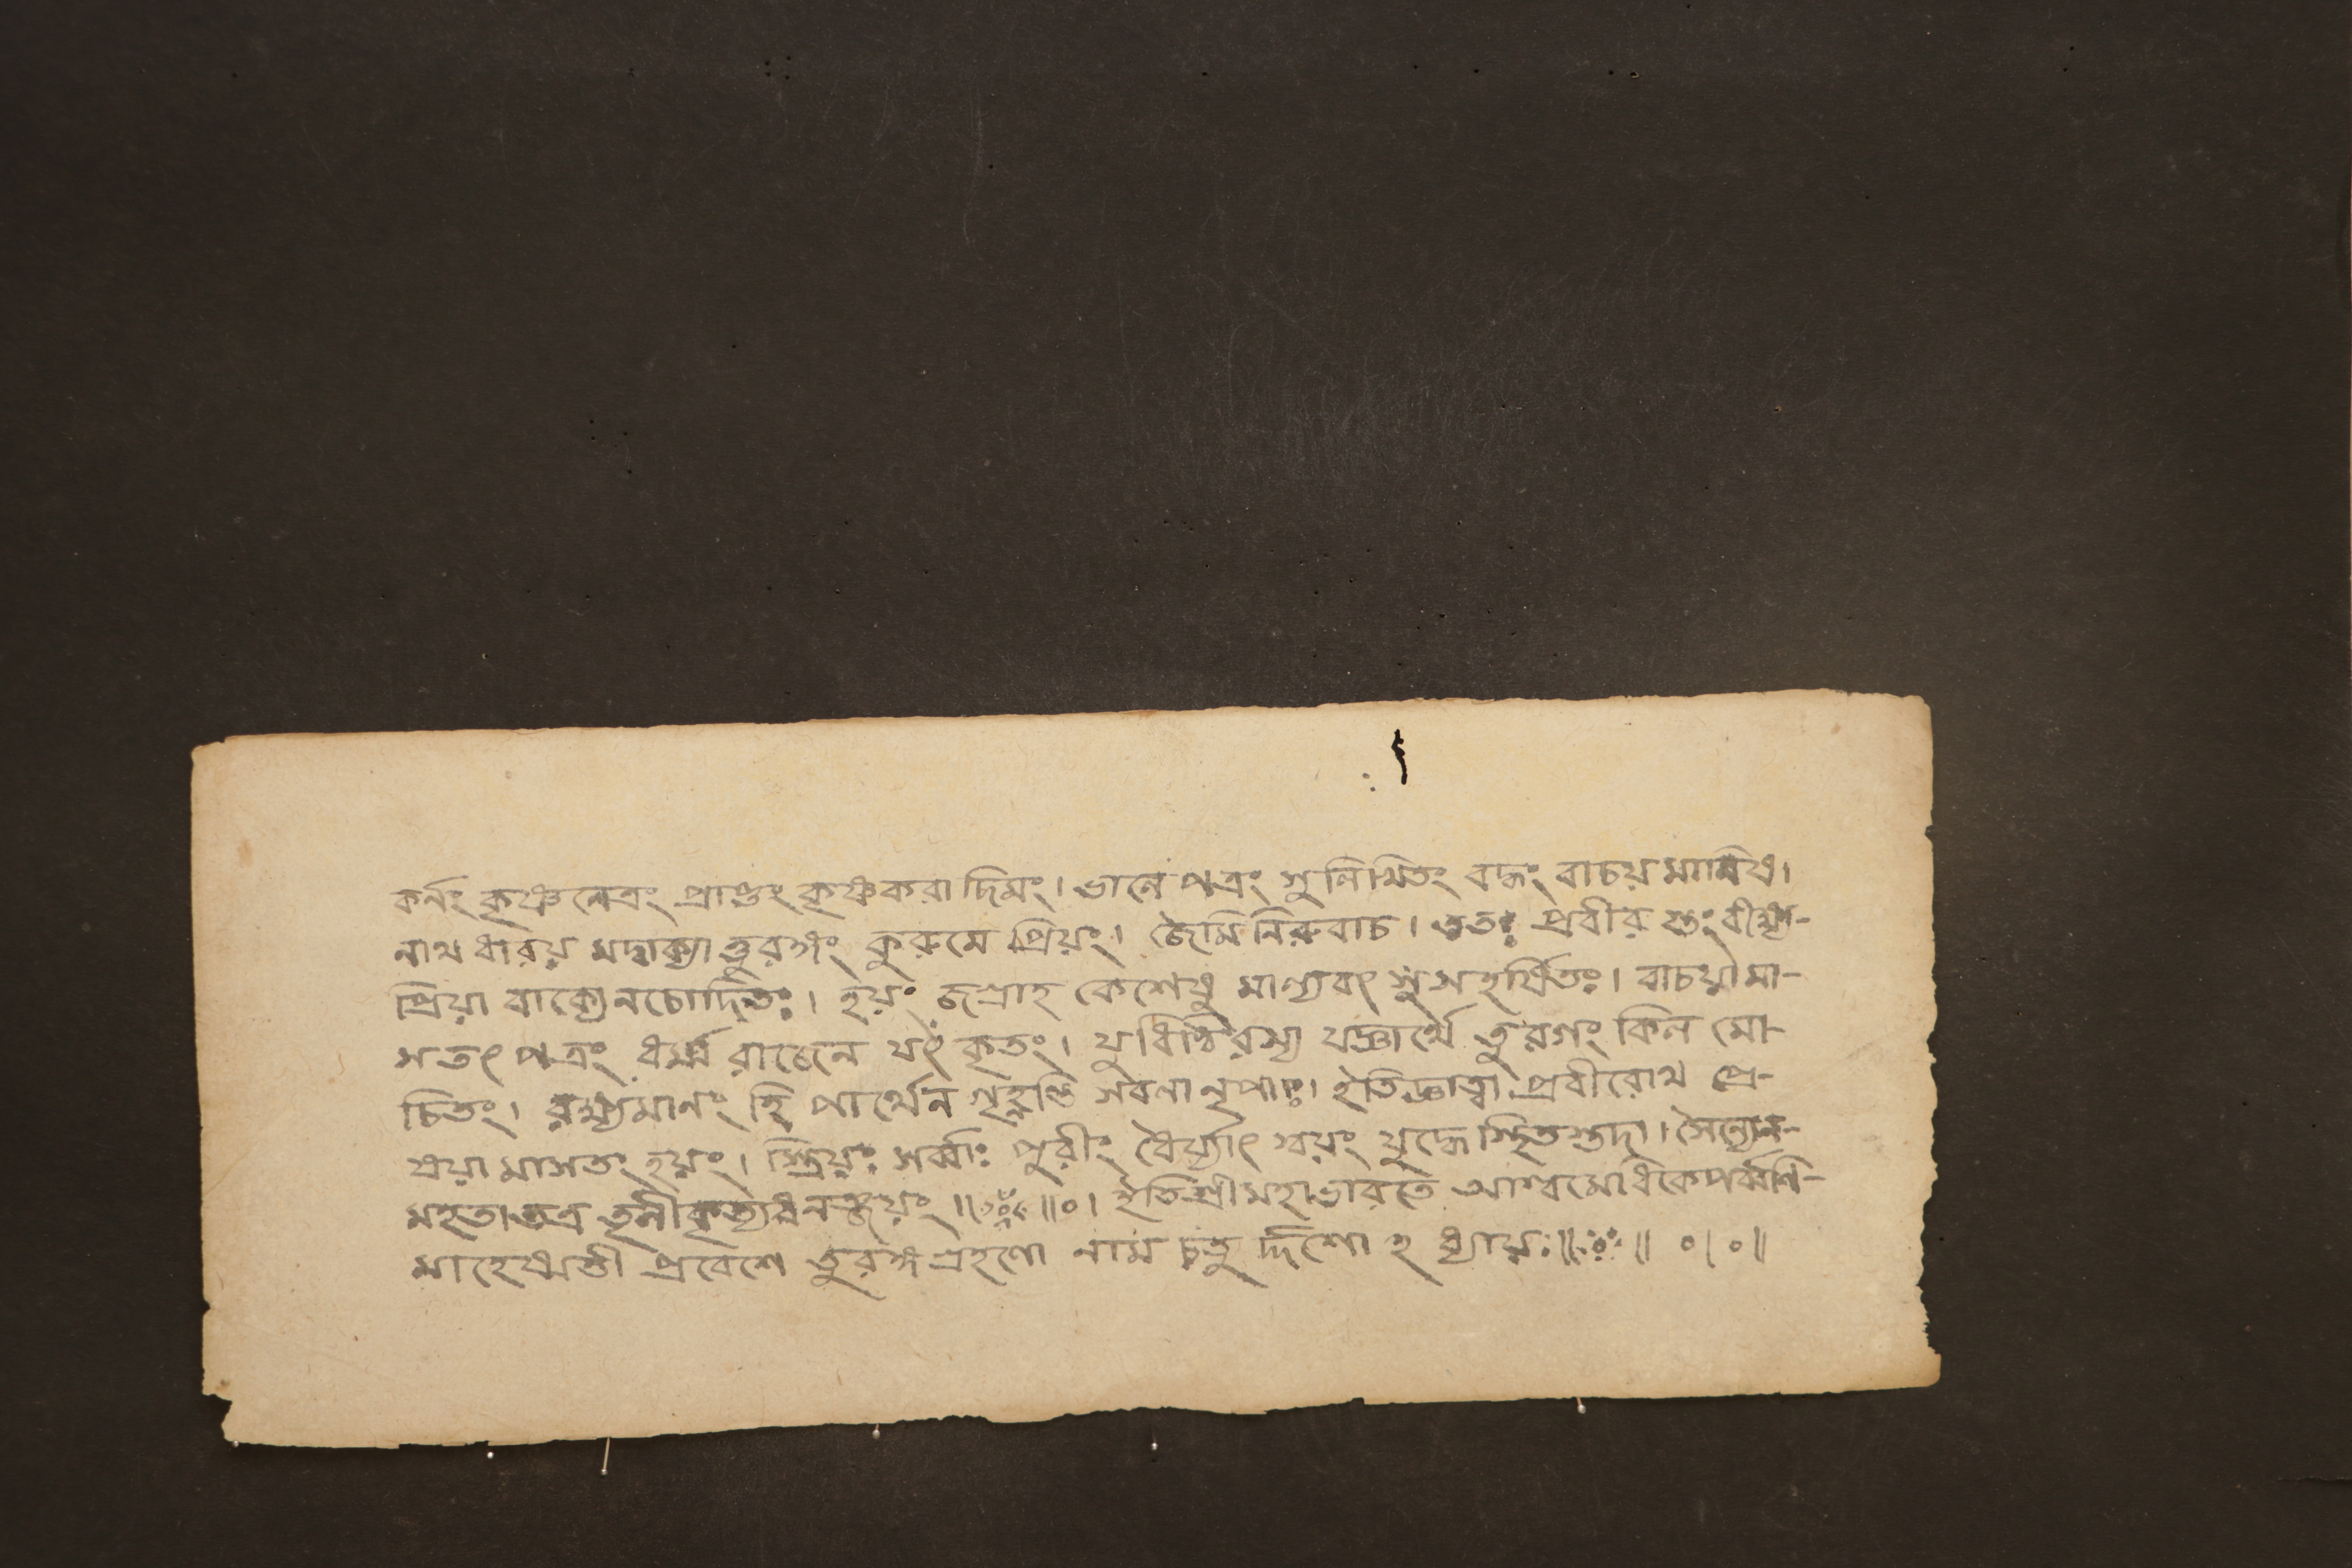 কর্নং কৃষ্ণনেত্রং প্রাপ্তং কৃষ্ণকরাদিমং। ভালে পত্রং সুলিখিতং বদ্ধং বাচয় মানিষ।
নাথ ধারয় মদ্বাক্যাত্তুরঙ্গং কুরুমে প্রিয়ং। জৈমিনিরুবাচ। ততঃ প্রবীর স্তং বীক্ষ্য-
প্রিয়া বাক্যেনচোদিতঃ। হয়ং জগ্রাহ কেশেষু মাল্যবৎ সুসহর্ষিতঃ। বাচয়ামা-
সতৎ পত্রং ধর্ম্মরাজেন যৎ কৃতং। যুধিষ্ঠিরস্য যজ্ঞার্থে তুরগং কিল মো-
চিতং। রক্ষ্যমানং হি পার্থেন গৃহ্ণন্তু সবলা নৃপাঃ। ইতিজ্ঞাত্বা প্রবীরোথ প্রে-
ষয়ামাসতং হয়ং। স্ত্রিয়ঃ সর্ব্বাঃ পুরীং ধৈর্য্যাৎ স্বয়ং যুদ্ধে স্থিতস্তদা। সৈন্যেন-
মহতা তত্র তৃনীকৃত্যধনঞ্জয়ং॥ঃ॥০। ইতিশ্রীমহাভারতে আশ্বমেধিকেপর্ব্বণি-
মাহেষ্মতী প্রবেশে তুরঙ্গগ্রহণো নাম চতুর্দ্দশো হধ্যায়ঃ॥ঃ॥ ০।০॥